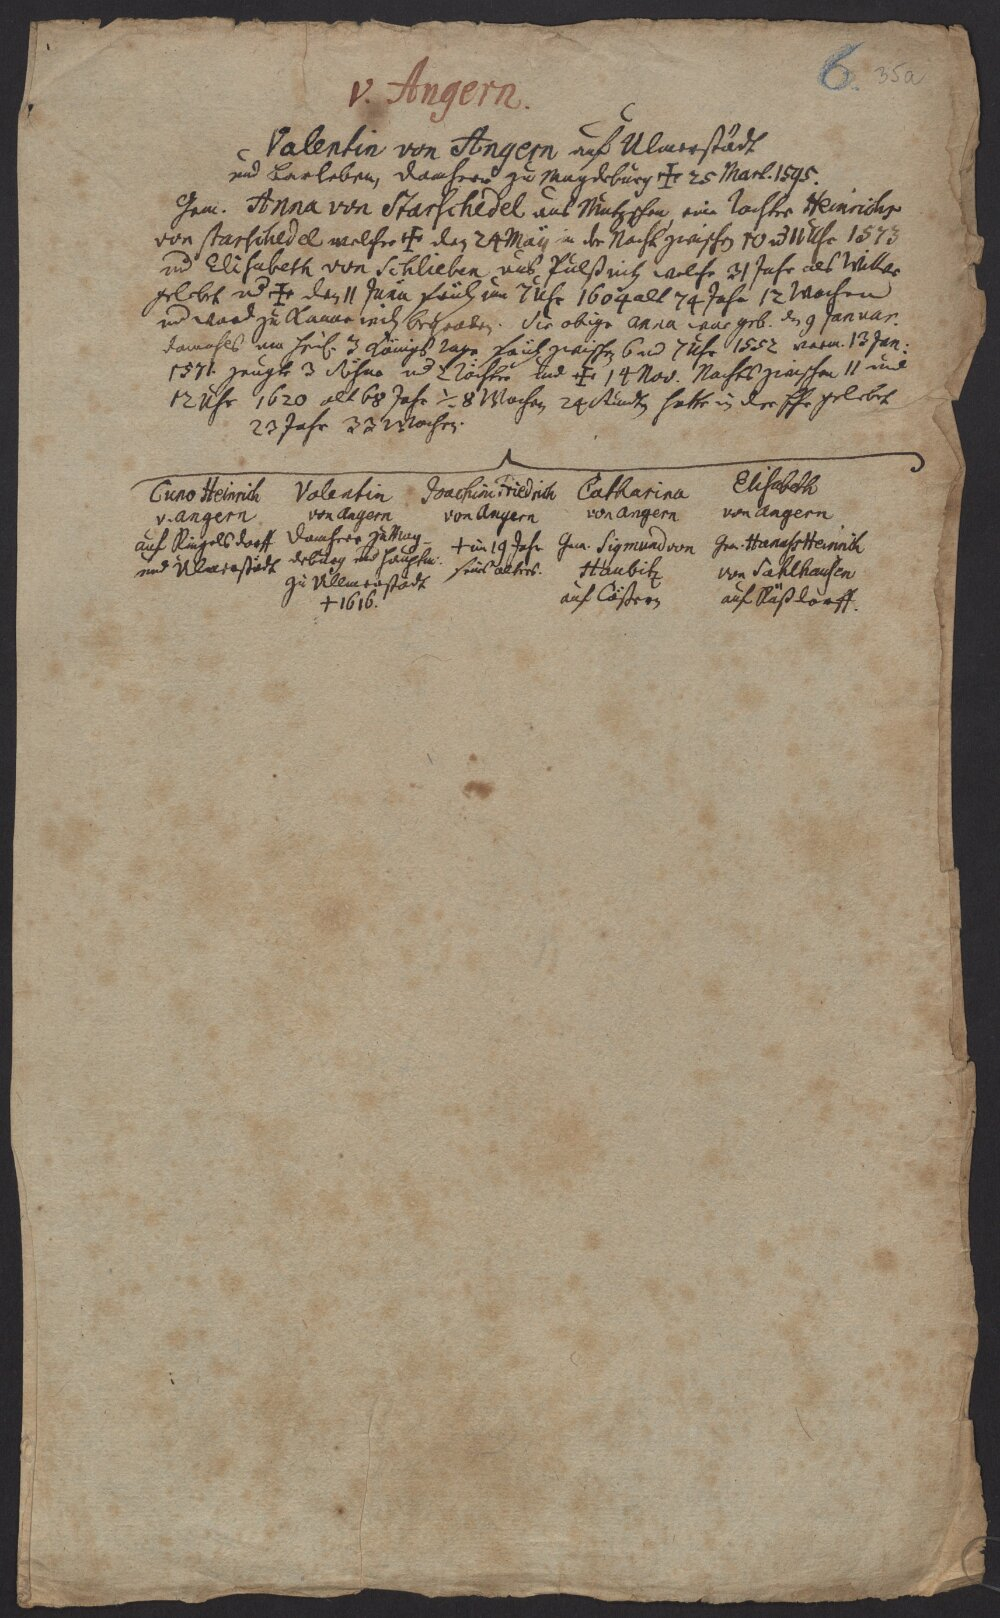 6. 35a
v. Angern.
Valentin von Angern auf Ulmerstädt
und Barleben, Domherr zu Magdeburg ✠ 25 Mart. 1595.
Gem. Anna von Starschedel aus Mutzschen eine Tochter Heinrichs
von Starschedel welcher ✠ den 24 Maÿ in der Nacht zwischen 10 und 11 Uhr 1573
und Elisabeth von Schlieben aus Pulßnitz welche 31 Jahr als Wittwe
gelebet und ✠ den 11 Junii früh um 7 Uhr 1604 alt 74 Jahr 12 Wochen
und ward zu begraben. Die obige Anna war geb. den 9 Januar.
damahls am Heil. 3 Königs Tage früh zwischen 6 und 7 Uhr 1552 verm. 13 Jan:
1571. zeugte 3 Söhne und 2 Töchter und ✠ 14 Nov. Nachts zwischen 11 und
12 Uhr 1620 alt 68 Jahr 8 Wochen 24 Stunden hatte in der Ehe gelebet
23 Jahr 33 Wochen.
Cuno Heinrich Valentin Joachim Friedrich Catharina Elisabeth
v. Angern von Angern von Angern von Angern von Angern
auf Ringelsdorff Domherr zu Mag- † im 19 Jahr Gem. Sigmund von Gem. Hannß Heinrich
und Ulmerstädt deburg und Hauptm. seines alters. Haubitz von Sahlhausen
zu Ullmerstädt auf auf
† 1616.